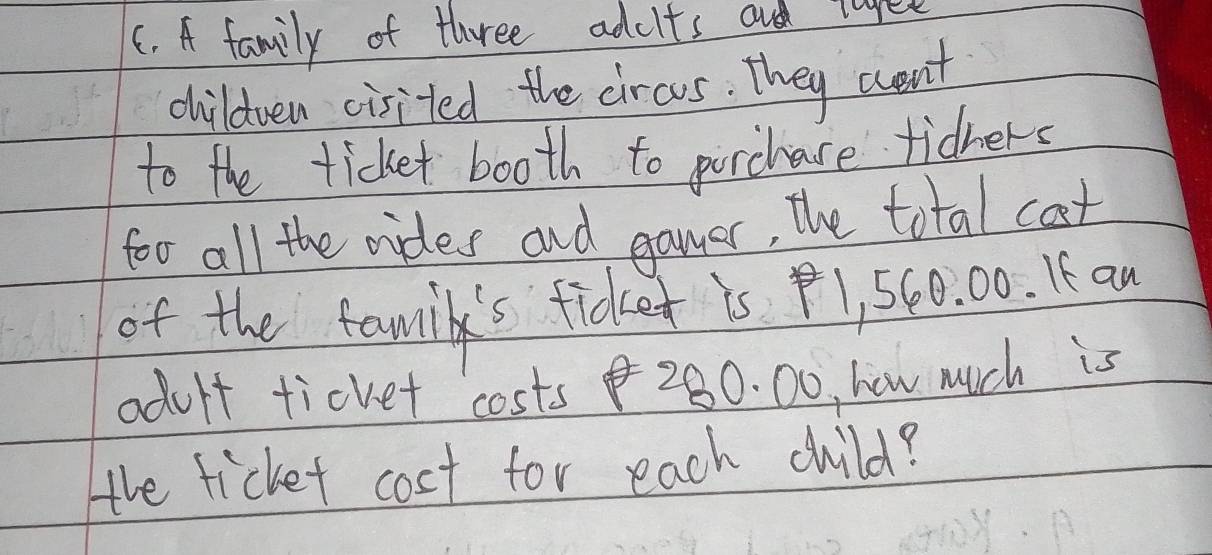 C. A family of three adults and three
children visited the circus. They went
to the ticket booth to purchase tickets
for all the rides and games, The total cost
of the family's ticket is ₱1,560.00. If an
adult ticket costs ₱280.00, how much is
the ticket cost for each child?